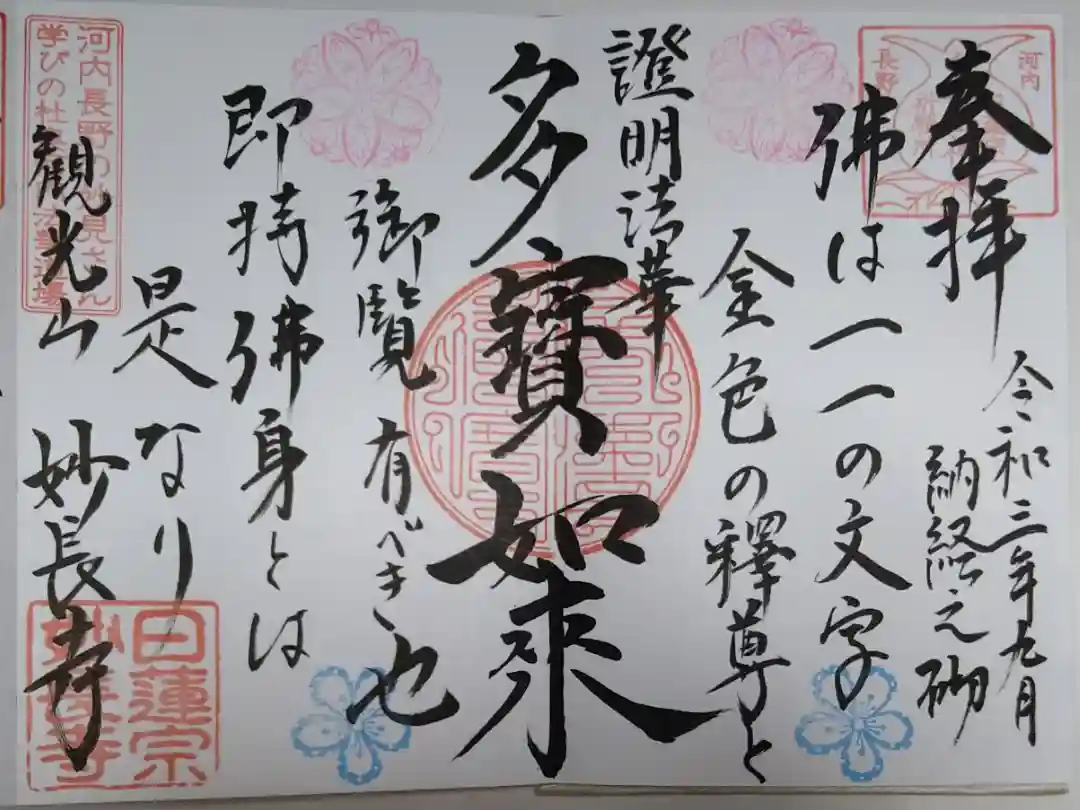 奉拝
河内
長野
令和三年九月
納経之砌
佛は一一の文字
金色の釋尊と
證明法華
多寳如来
御覧有べき也
即持佛身とは
是なり
観光山 妙長寺
河内長野の妙見さん
学びの杜
日蓮宗
妙長寺